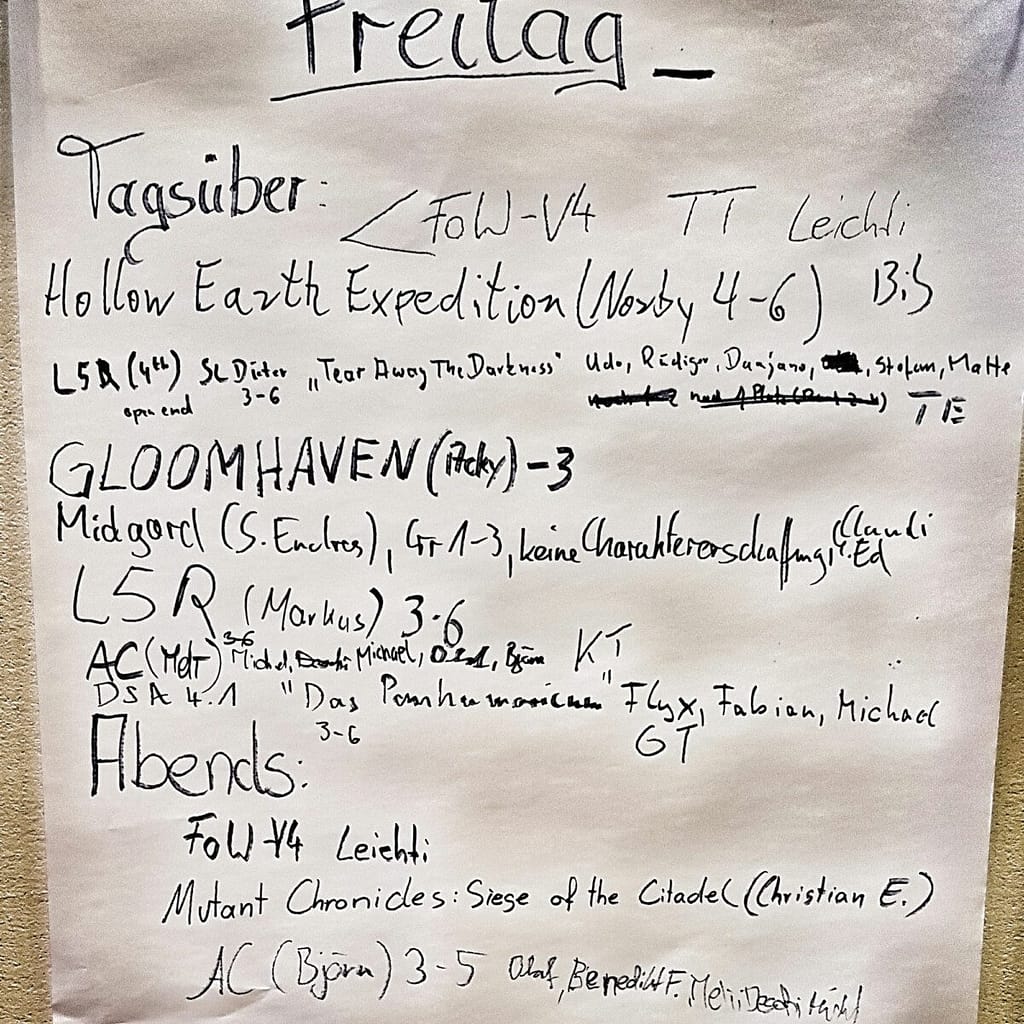 Freitag
Tagsüber:
FoW-V4 TT Leichti
Hollow Earth Expedition (Noxby 4-6) BiS
L5R (4th) SL Dieter „Tear Away The Darkness" Udo, Rüdiger, Damjano, Stefan, Malte
open end 3-6 TE
GLOOMHAVEN (Acky) -3
Midgard (S. Endres), Gr 1-3, keine Charaktererschaffung, Claudi
Ed
L5R (Markus) 3-6
AC (Meli) 3-6 Michael, Björn KT
DSA 4.1 "Das Panharmonicum" Flyx, Fabian, Michael
3-6 GT
Abends:
FoW-V4 Leichti
Mutant Chronicles: Siege of the Citadel (Christian E.)
AC (Björn) 3-5 Olaf, Benedikt F.